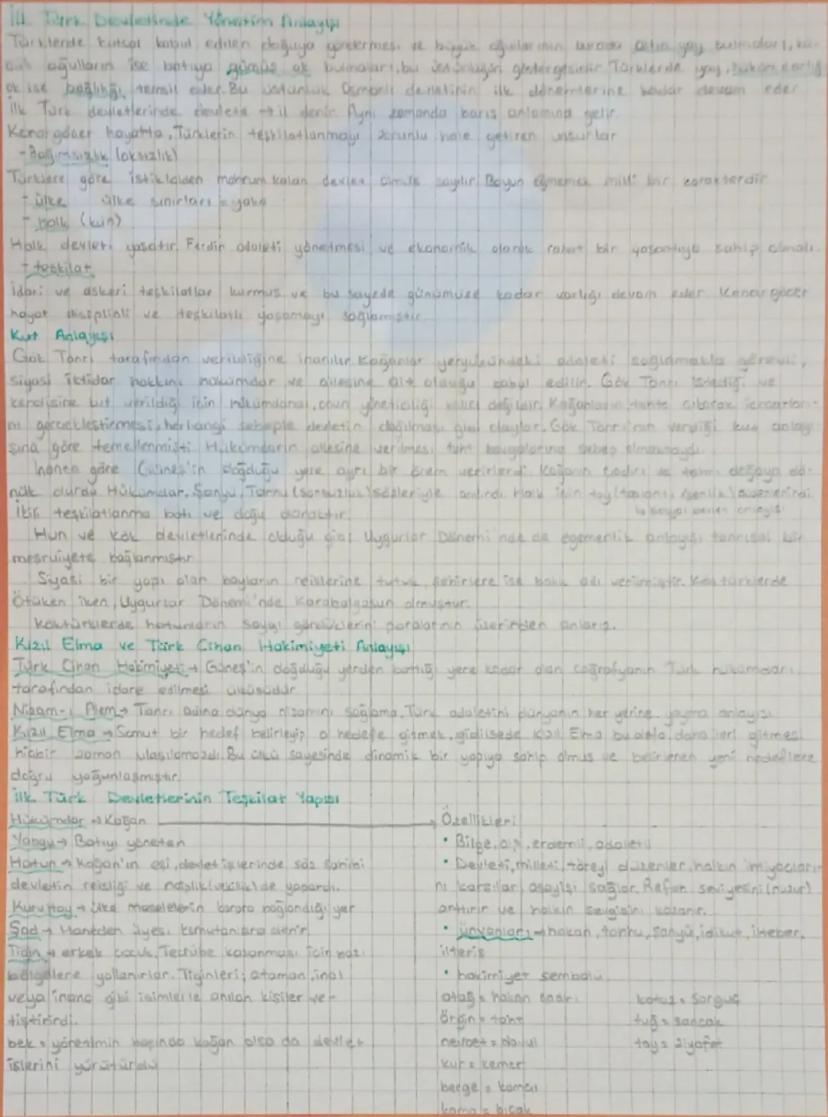 İlk Türk Devletlerinde Yönetim Anlayışı
Türklerde kutsal kabul edilen doğuya göndermesi ve büyük oğullarının burada altın yay bulmaları, kü-
çük oğulların ise batıya gümüş ok bulmaları, bu üstünlüğün göstergesidir. Türklerde yay, hükümdarlığı
ok ise bağlılığı temsil eder. Bu üstünlük Osmanlı devletinin ilk dönemlerine kadar devam eder
İlk Türk devletlerinde devlete → il denir. Aynı zamanda barış anlamına gelir.
Konar göçer hayatta, Türklerin teşkilatlanmayı zorunlu hale getiren unsurlar
- Bağımsızlık (oksızlık)
Türklere göre istiklalden mahrum kalan devlet ölmüş sayılır. Boyun eğmemek milli bir karakterdir
- ülke ülke sınırları = yaka
- halk (kün)
Halk devleti yaşatır. Ferdin adaleti yönetmesi ve ekonomik olarak rahat bir yaşantıya sahip olmalı.
- teşkilat
İdari ve askeri teşkilatlar kurmuş ve bu sayede günümüze kadar varlığı devam eder. Konar göçer
hayat disiplinli ve teşkilatlı yaşamayı sağlamıştır.
Kut Anlayışı
Gök Tanrı tarafından verildiğine inanılır. Kağanlar yeryüzündeki adaleti sağlamakla görevli,
siyasi iktidar hakkını hükümdar ve ailesine ait olduğu kabul edilir. Gök Tanrı istediği ve
kendisine kut verildiği için hükümdarın, onun yöneticiliği kalıcı değildir. Kağanların tahta çıkarak icraatları-
nı gerçekleştirmesi, herhangi sebeple devletin dağılması gibi olaylar, Gök Tanrı'nın verdiği kut anlayı-
şına göre temellenmişti. Hükümdarın ailesine verilmesi taht kavgalarına sebep olmaktaydı
göre Güneş'in doğduğu yere ayrı bir önem verirlerdi. Kağanın çadırı ve tahtı doğuya dö-
nük olurdu. Hükümdar, Şanyü, Tanhu (sonsuzluk) sözleriyle anılırdı. Halk için toy (toplantı) (şenlik) düzenlenirdi.
İkili teşkilatlanma batı ve doğu olaraktır.
Hun ve Kök devletlerinde olduğu gibi Uygurlar Dönemi'nde de egemenlik anlayışı tanrısal bir
meşruiyete bağlanmıştır.
Siyasi bir yapı olan boyların reislerine tutuk, şehirlere ise balık adı verilmiştir. Köktürklerde
Ötüken iken, Uygurlar Dönemi'nde Karabalgasun olmuştur.
Köktürklerde hatunların saygı gördüklerini paralarının üzerinden anlarız.
Kızıl Elma ve Türk Cihan Hakimiyeti Anlayışı
Türk Cihan Hakimiyeti → Güneş'in doğduğu yerden battığı yere kadar olan coğrafyanın Türk hükümdarı
tarafından idare edilmesi ülküsüdür
Nizam-ı Alem → Tanrı adına dünya nizamını sağlama, Türk adaletini dünyanın her yerine yayma anlayışı
Kızıl Elma → Somut bir hedef belirleyip o hedefe gitmek, gidilsede Kızıl Elma bu anda daha ileri gitmesi
hiçbir zaman ulaşılamazdı. Bu ülkü sayesinde dinamik bir yapıya sahip olmuş ve belirlenen yeni hedeflere
doğru yoğunlaşmıştır.
İlk Türk Devletlerinin Teşkilat Yapısı
Hükümdar → Kağan → Özellikleri
Yabgu → Batıyı yöneten
Hatun → Kağan'ın eşi, devlet işlerinde söz sahibi
devletin reisliği ve naiplik (vekillik) de yapardı.
Kurultay → ülke meselelerin karara bağlandığı yer
Şad → Hanedan üyesi komutanlara denir.
Tigin → erkek çocuk, Tecrübe kazanması için bazı
bölgelere yollanırlar. Tiginleri; ataman, inal
veya inanç gibi isimlerle anılan kişiler ye-
tiştirirdi.
bek = yönetimin başında kağan olsa da devlet
işlerini yürütürdü
• Bilge, alp, erdemli, adaletli
• Devleti, milleti, töreyi düzenler, halkın ihtiyaçları-
nı karşılar, asayişi sağlar. Refah seviyesini (huzur)
arttırır ve halkın sevgisini kazanır.
• ünvanları → hakan, tanhu, şanyü, idikut, ilteber,
ilteriş
• hakimiyet sembolü
otağ = hakan çadırı
örgin = taht
nevbet = davul
kur = kemer
berge = kamçı
kama = bıçak
kotuz = sorguç
tuğ = sancak
toy = ziyafet